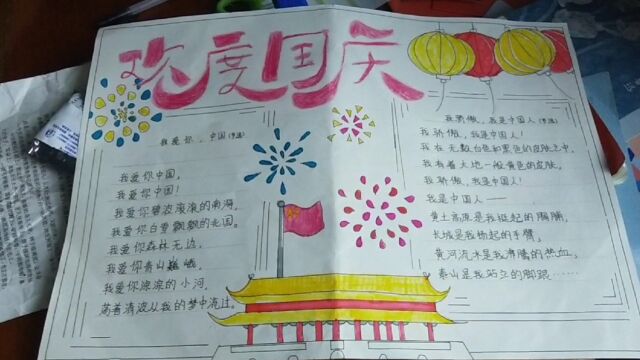 欢度国庆
我爱你，中国(节选)
我爱你中国，
我爱你中国！
我爱你碧波滚滚的南海，
我爱你白雪飘飘的北国。
我爱你森林无边，
我爱你青山巍峨，
我爱你淙淙的小河，
荡着清波从我的梦中流过。
我骄傲，我是中国人(节选)
我骄傲，我是中国人！
我在无数白色和黑色的皮肤之中，
我有着大地一般黄色的皮肤，
我骄傲，我是中国人！
我是中国人——
黄土高原是我挺起的胸脯，
长城是我扬起的手臂，
黄河流水是我沸腾的热血，
泰山是我站立的脚跟……